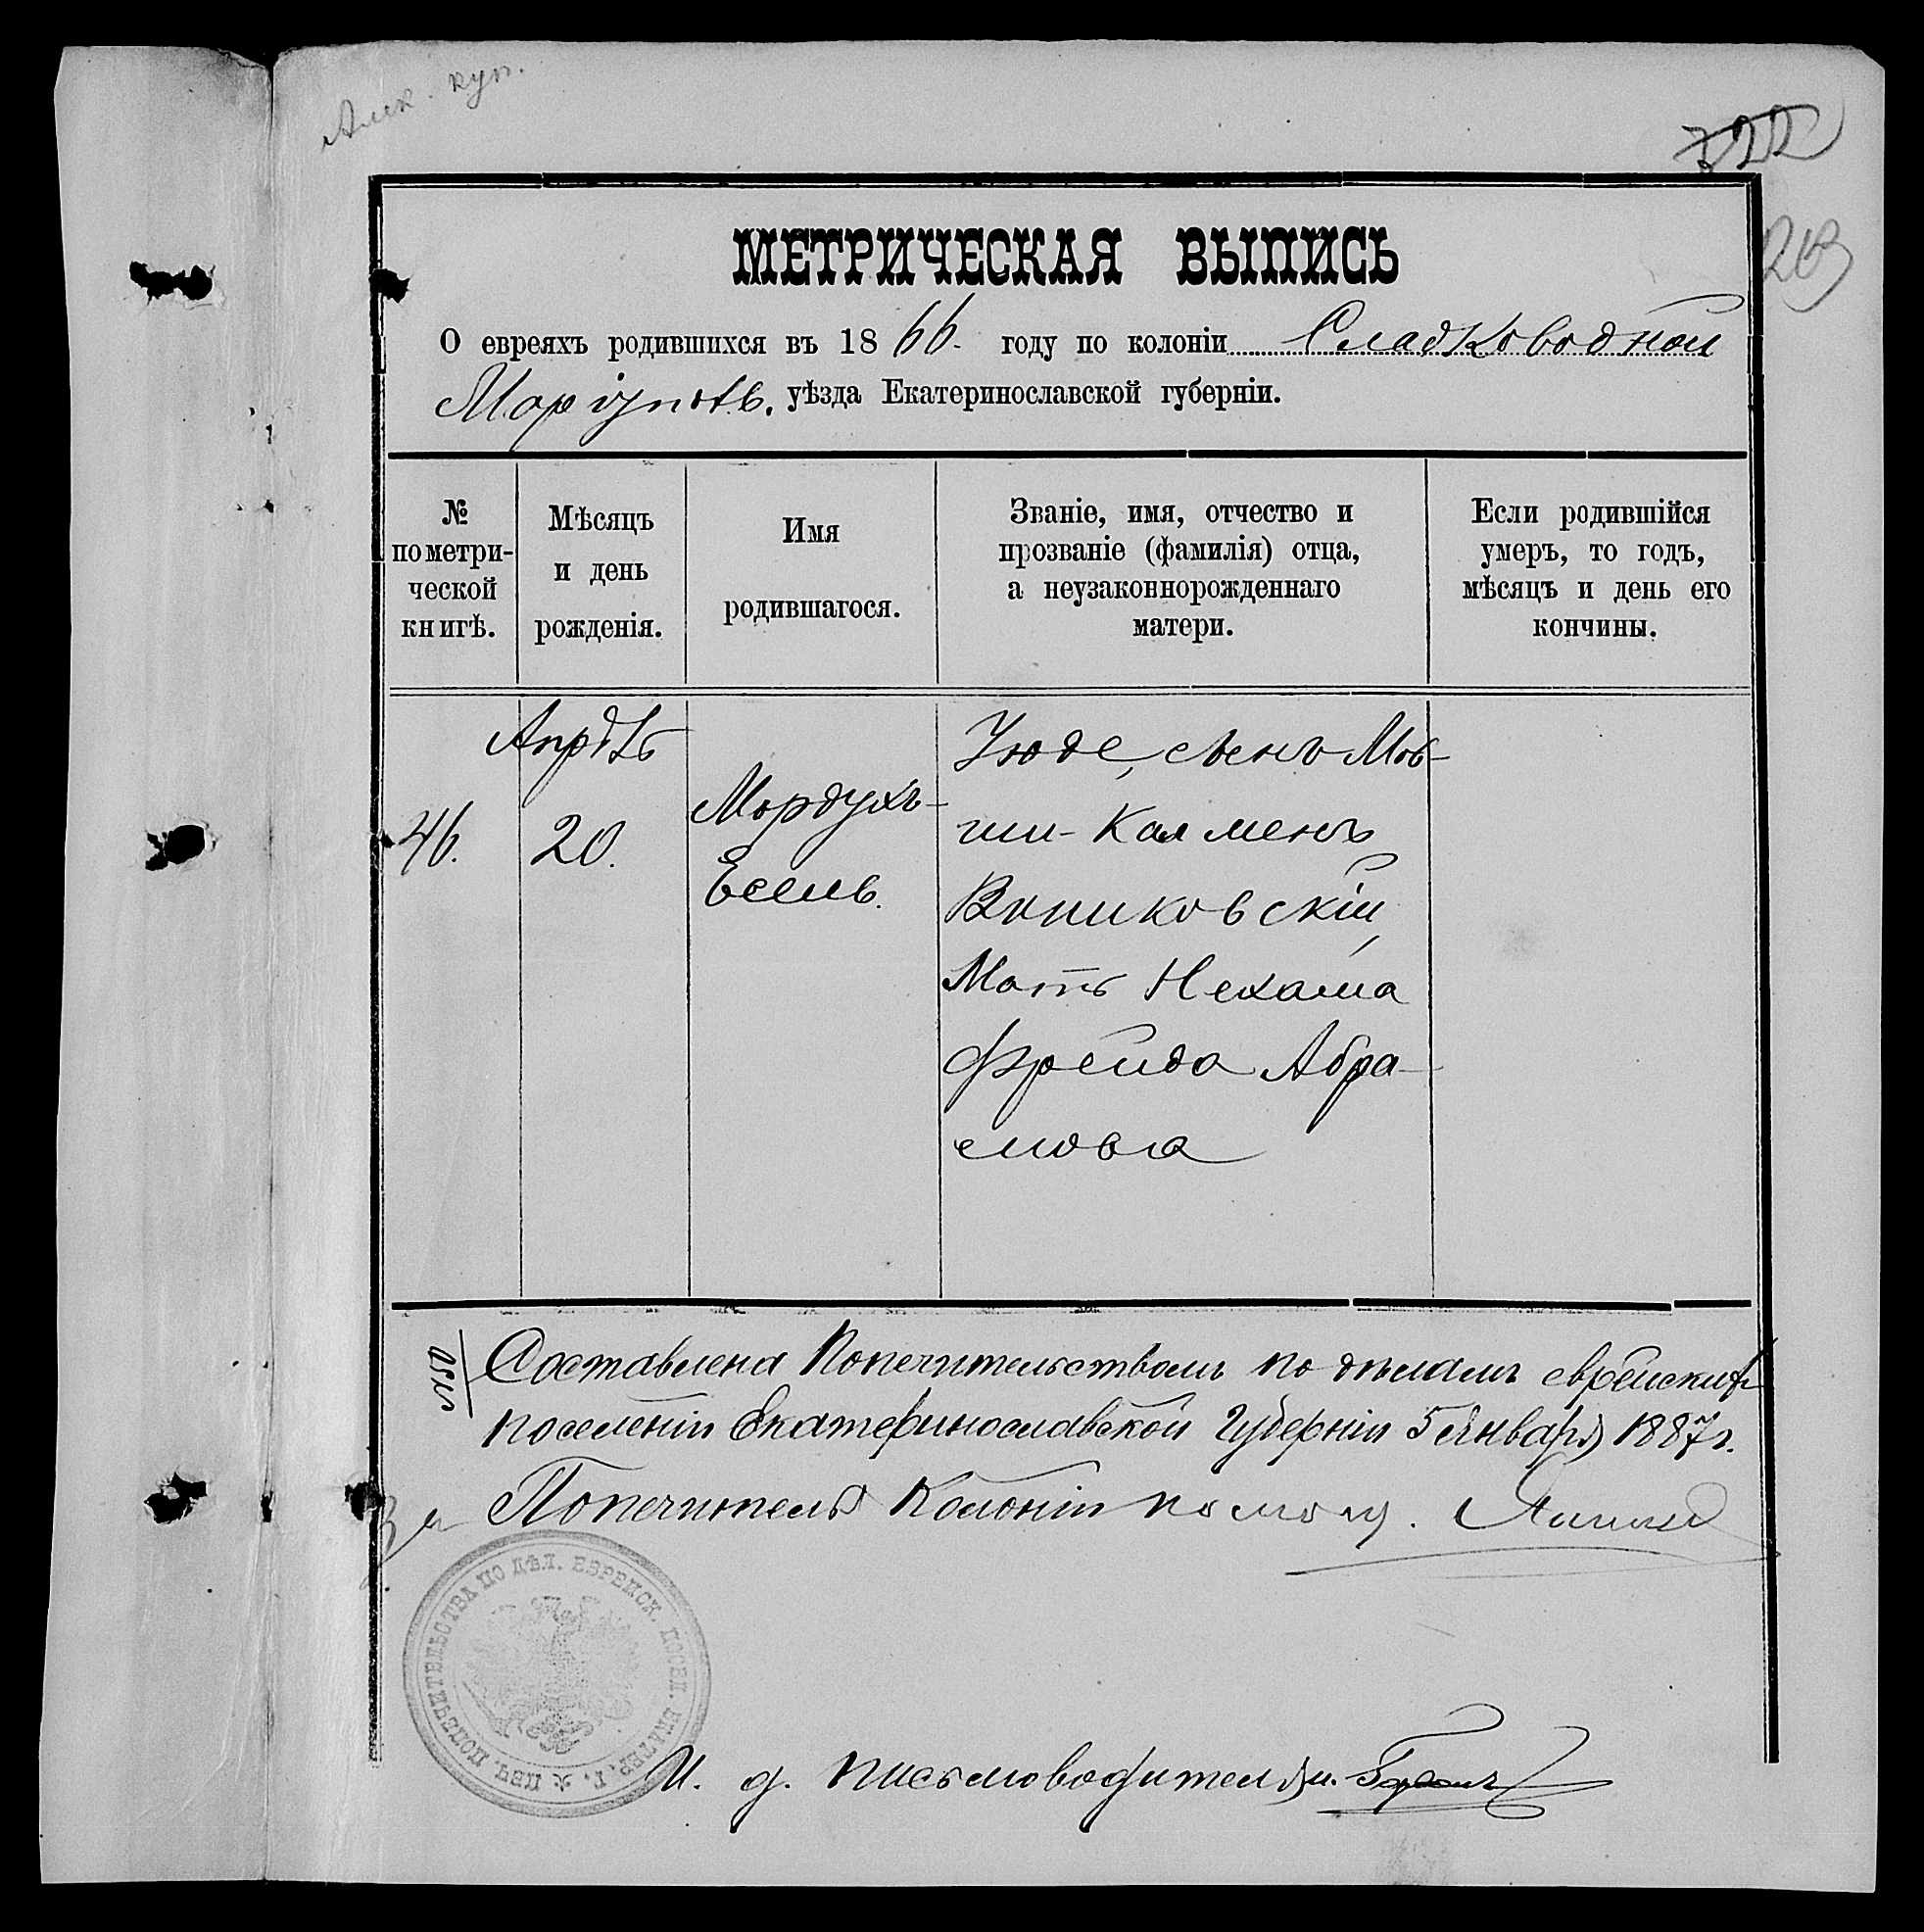 Алек. куп.
722
203
МЕТРИЧЕСКАЯ ВЫПИСЬ
О евреяхъ родившихся въ 1866. году по колоніи Сладководной
Маріупол. уѣзда Екатеринославской губерніи.
№ по метрической книгѣ.
Мѣсяцъ и день рожденія.
Имя родившагося.
Званіе, имя, отчество и прозваніе (фамилія) отца, а неузаконнорожденнаго матери.
Если родившійся умеръ, то годъ, мѣсяцъ и день его кончины.
46.
Апрѣль
20.
Мордухъ-
Есель.
Іюде, сынъ Мов-
ши-Калменъ
Мать Нехама
Фрейда Абра-
мова
Составлена Попечительствомъ по дѣламъ еврейскихъ
поселеній Екатеринославской Губерніи 5 Января 1887 г.
За Попечителя Колоній помощ.
ПЕЧ. ПОПЕЧИТЕЛЬСТВА ПО ДѢЛ. ЕВРЕЙСК. ПОСЕЛ. ЕКАТЕР. Г.
И. д. письмоводителя